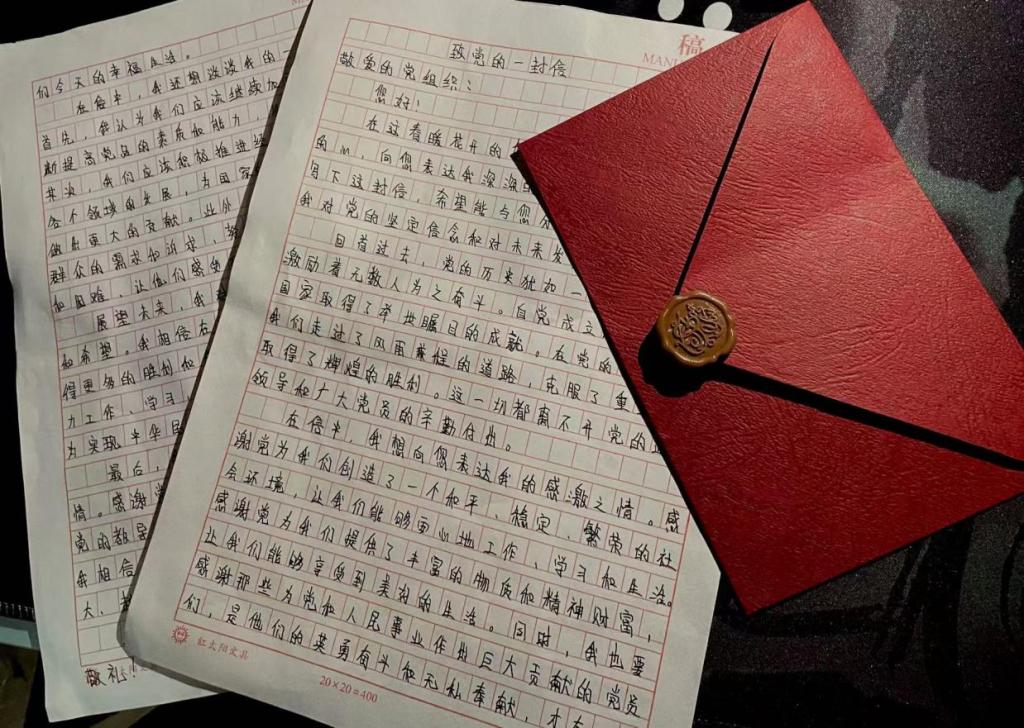 稿
MANU
致党的一封信
敬爱的党组织：
您好！
在这春暖花开的
的心，向您表达我深深的
写下这封信，希望能与您分
我对党的坚定信念和对未来发
回首过去，党的历史犹如一
激励着无数人为之奋斗。自党成立
国家取得了举世瞩目的成就。在党的
我们走过了风雨兼程的道路，克服了重
取得了辉煌的胜利。这一切都离不开党的正
领导和广大党员的辛勤付出。
在信中，我想向您表达我的感激之情。感
谢党为我们创造了一个和平、稳定、繁荣的社
会环境，让我们能够更心地工作、学习和生活。
感谢党为我们提供了丰富的物质和精神财富，
让我们能够享受到美好的生活。同时，我也要
感谢那些为党和人民事业作出巨大贡献的党员
们，是他们的英勇奋斗和无私奉献，才
红太阳文具
20×20=400
们今天的幸福生活。
在信中，我还想谈谈我的一
首先，我认为我们应该继续加
断提高党员的素质和能力，
其次，我们应该积极推进经
各个领域的发展，为国家
做出更大的贡献。此外
群众的需求和诉求，解
和困难，让他们感受
展望未来，我
和希望。我相信在
得更多的胜利和
力工作、学习
为实现中华民
最后，
情。感谢党
党的教导
我相信
大、
敬礼！